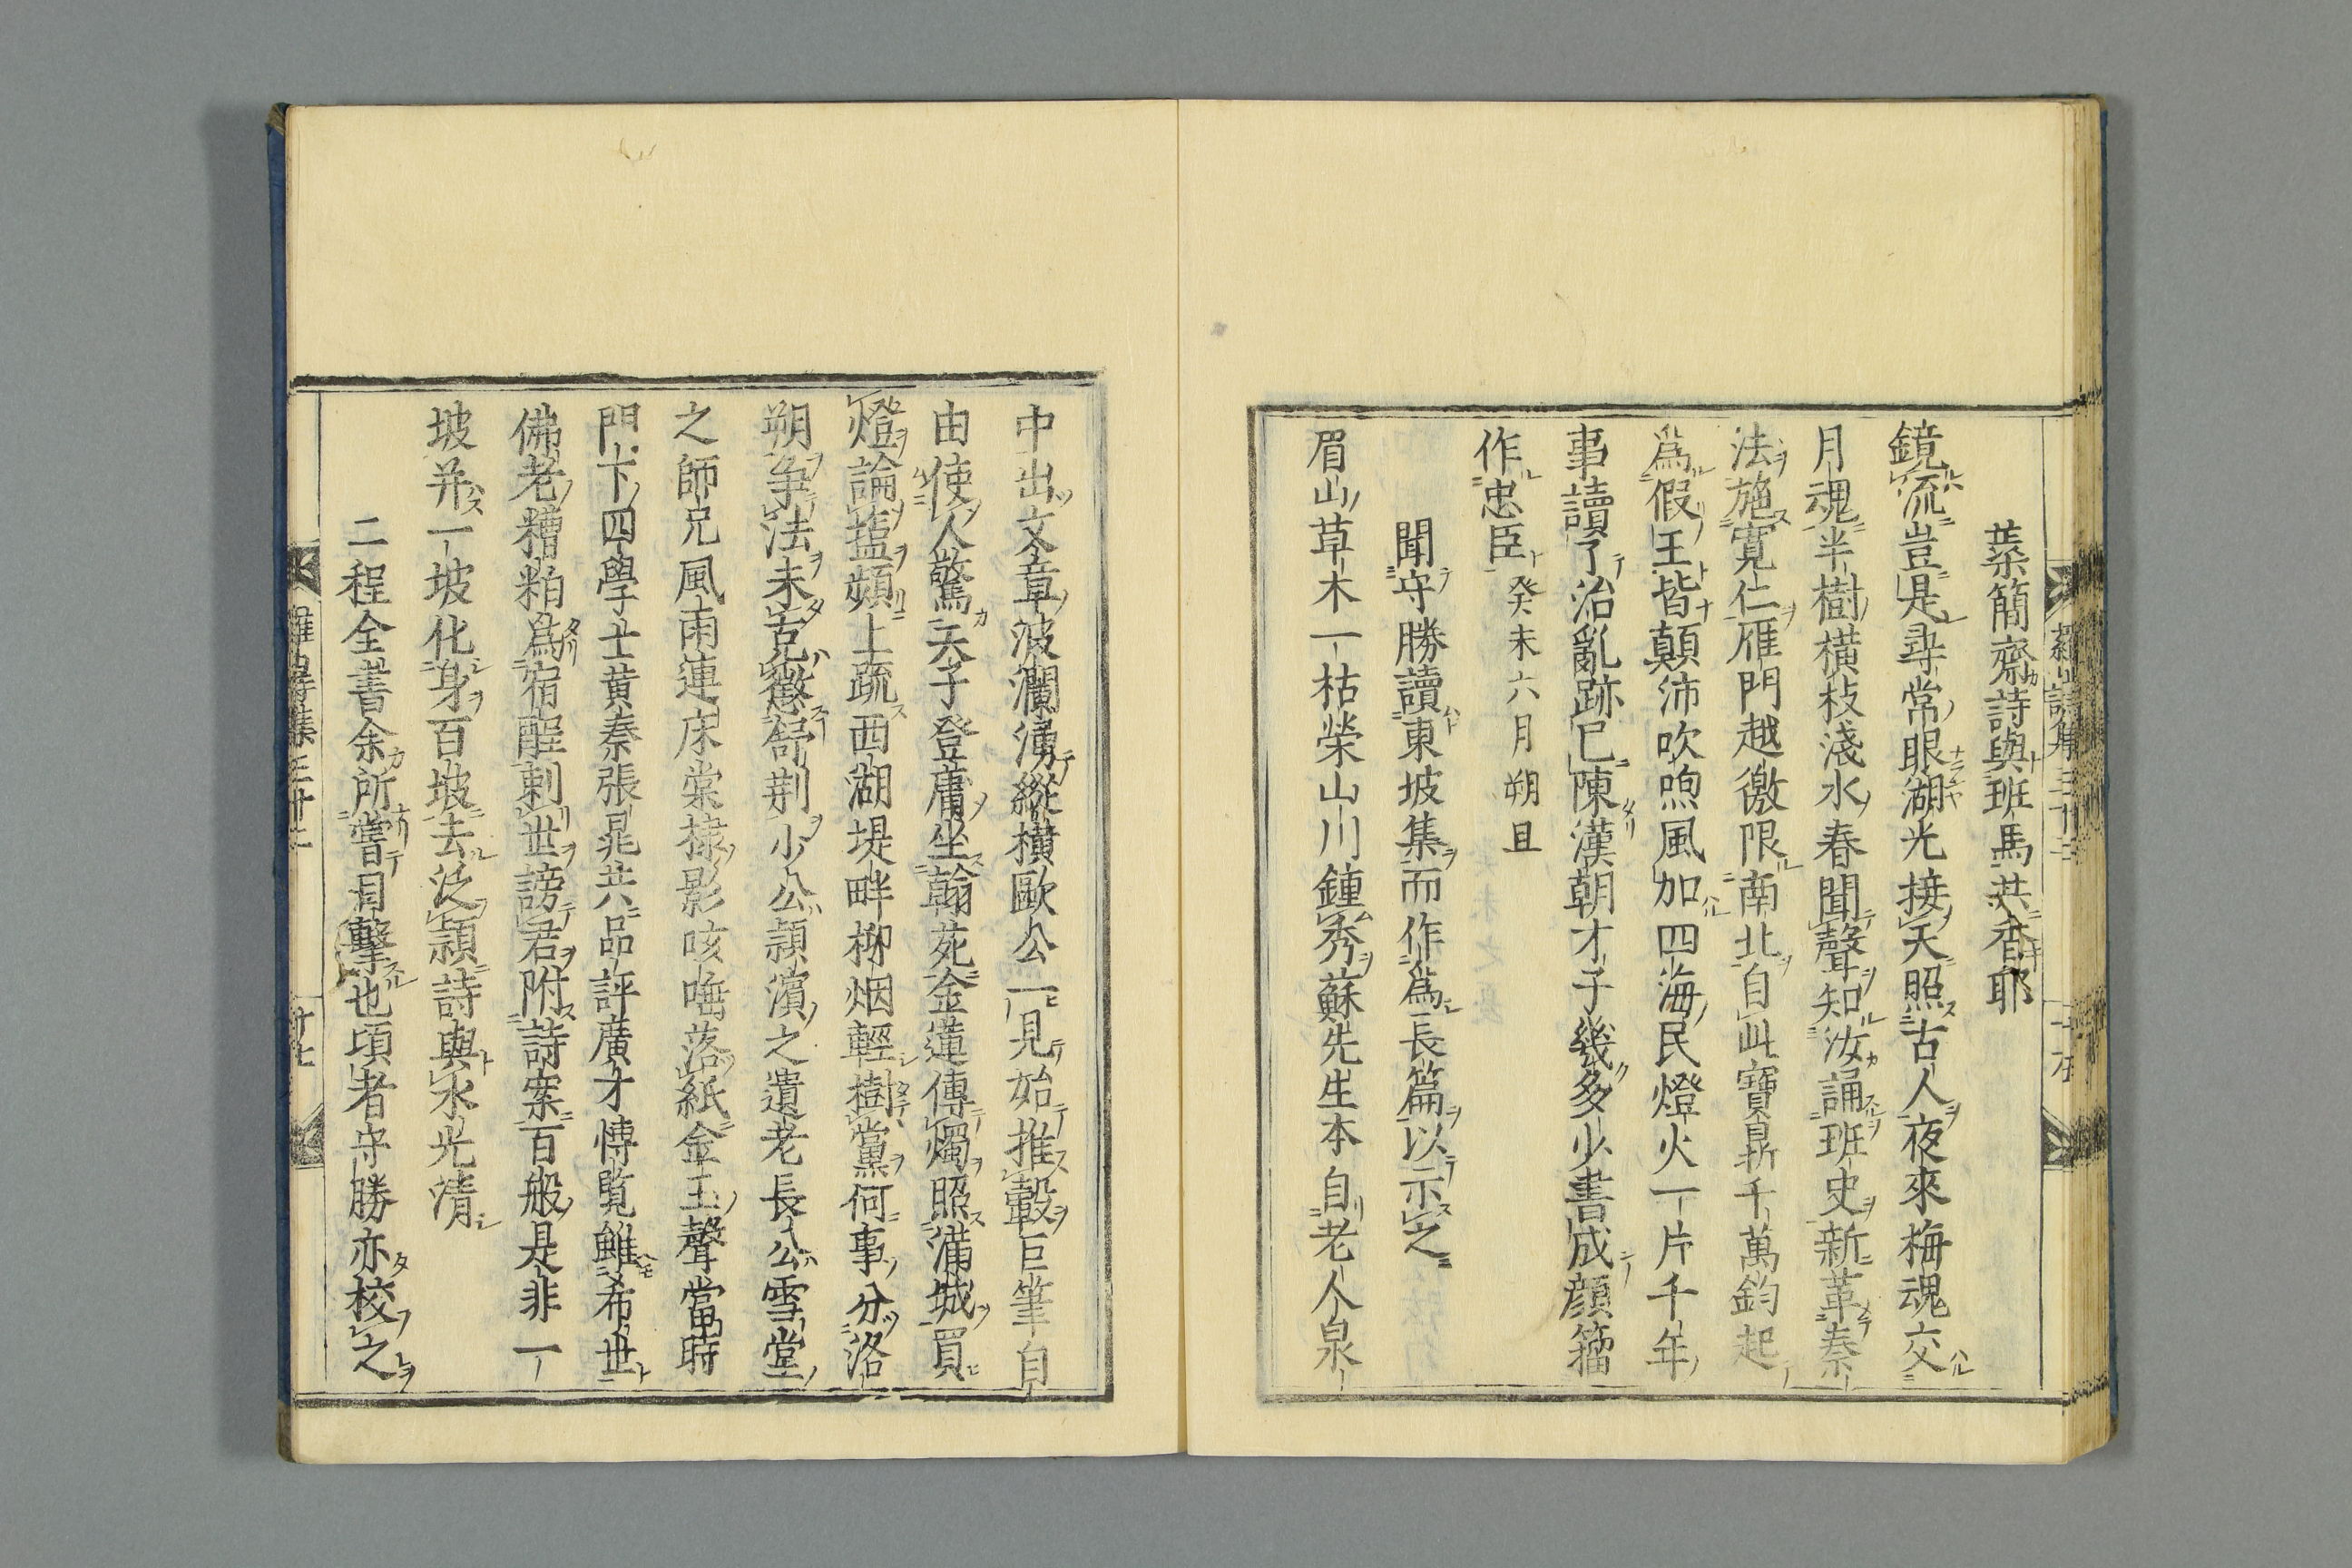 葉簡齋詩與班馬共香耶
鏡流豈是尋常眼湖光接天照古人夜來梅魂交
月魂半樹橫枝淺水春聞聲知汝誦班史新革秦
法施寛仁雁門越徼限南北自此寶鼎千萬鈞起
爲假王皆顛沛吹喣風加四海民燈火一片千年
事讀了治亂跡已陳漢朝才子幾多少書成顔籀
作忠臣 癸未六月朔旦
聞守勝讀東坡集而作爲長篇以示之
眉山草木一枯榮山川鍾秀蘇先生本自老人泉
中出文章波瀾湧縱横歐公一見始推轂巨筆自
由使人驚天子登庸坐翰苑金蓮傳燭照滿城買
燈論塩頻上疏西湖堤畔柳烟輕樹黨何事分洛
朔争法未克懲舒荆小公潁濱之遺老長公雪堂
之師兄風雨連床棠棣影咳唾落紙金玉聲當時
門下四學士黄秦張晁共品評廣才愽覧雖希世
佛老糟粕爲宿酲刺世謗君附詩案百般是非一
坡并一坡化身百坡去泛潁詩與水光清
二程全書余所嘗目擊也頃者守勝亦校之
羅山詩集三十二
羅山詩集三十二
廿七